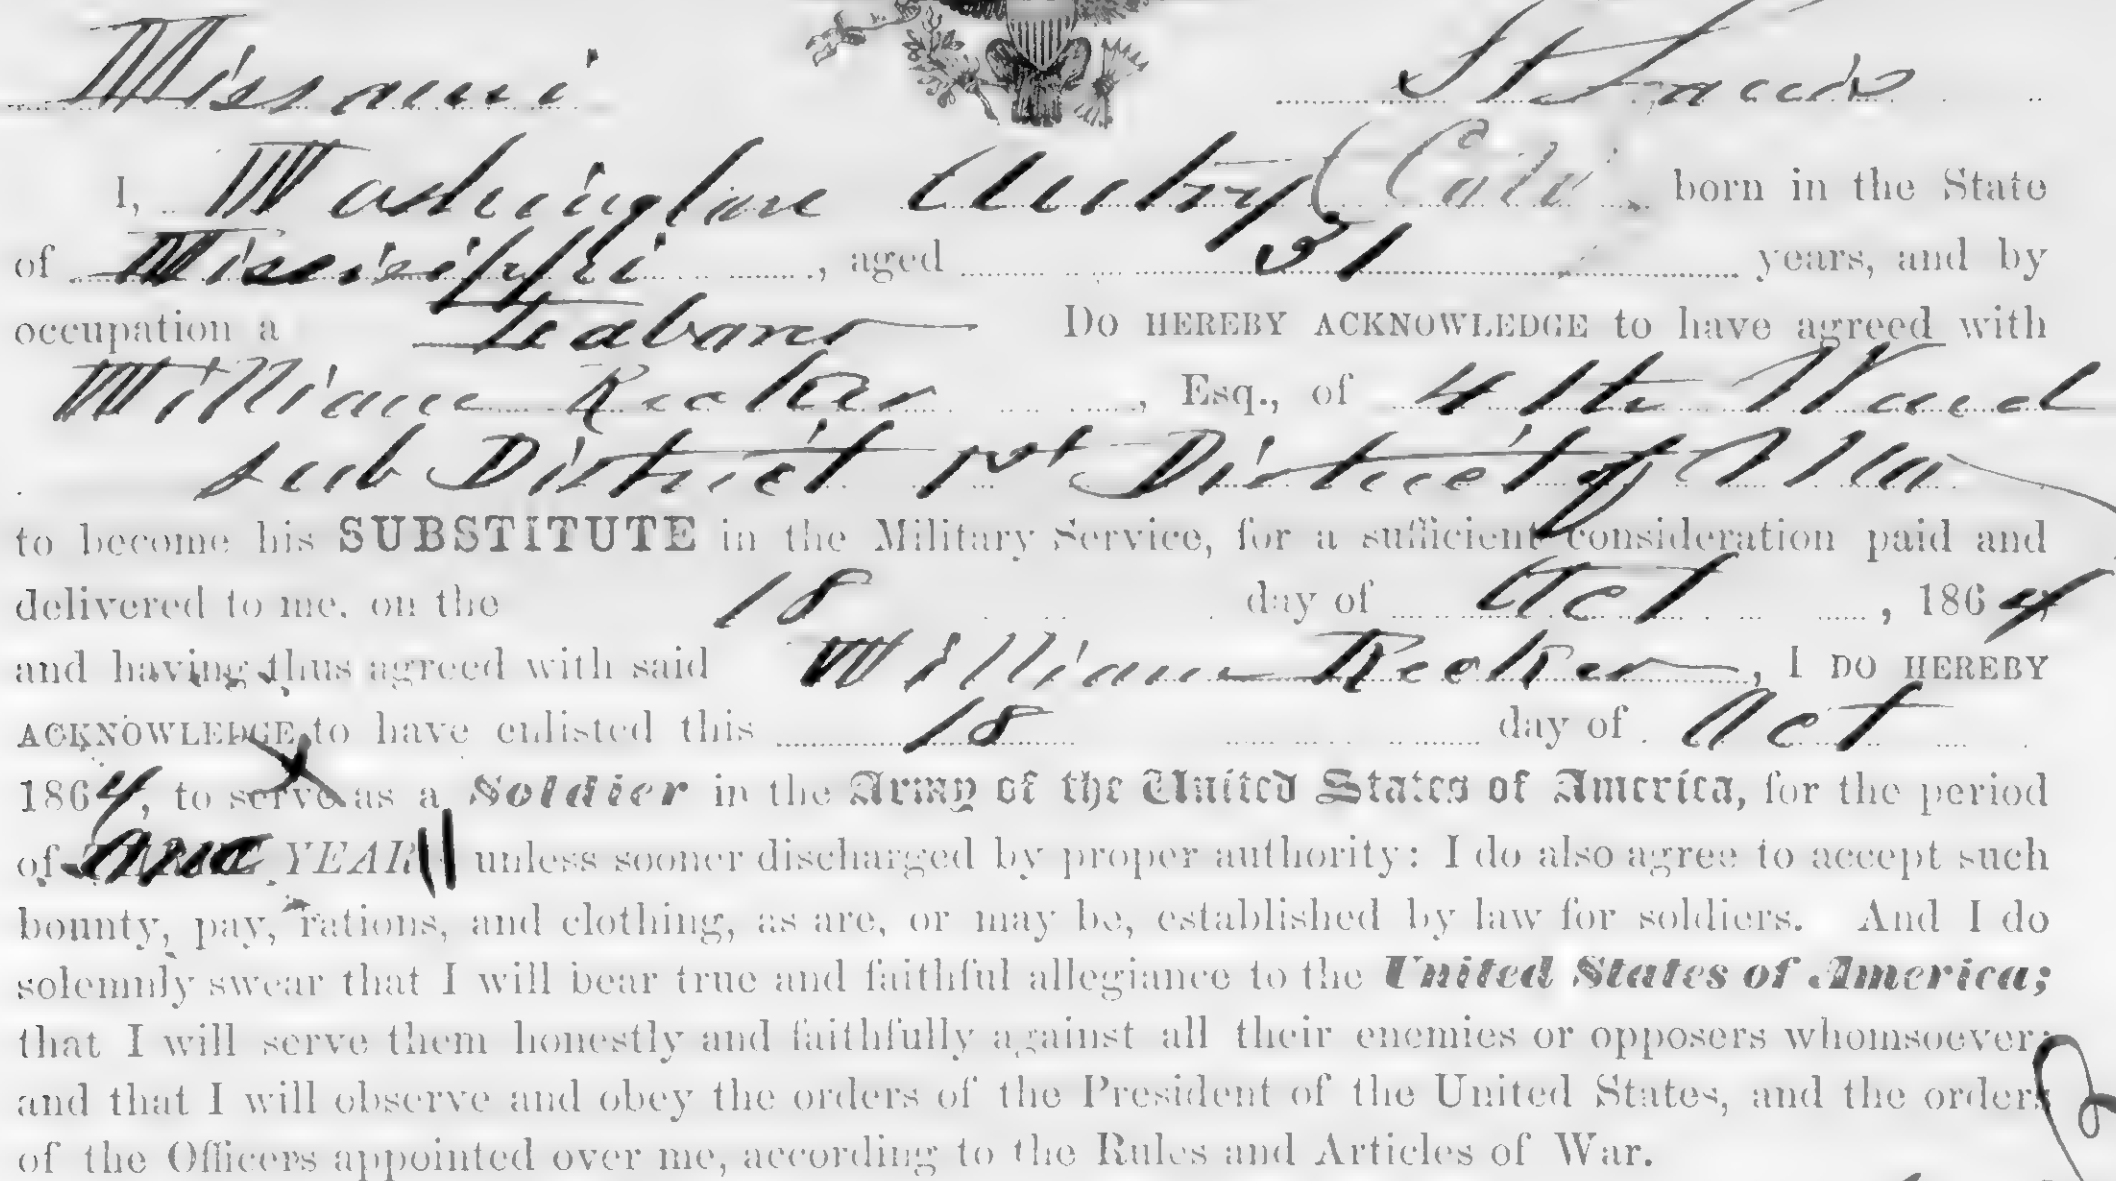 Missouri St Louis
I, Washington Autry (Cold) born in the State
of Mississippi, aged 31 years, and by
occupation a Labarer DO HEREBY ACKNOWLEDGE to have agreed with
William Recker, Esq., of 4th Ward
sub District 1st District of Mo
to become his SUBSTITUTE in the Military Service, for a sufficient consideration paid and
delivered to me, on the 18 day of Oct, 1864
and having thus agreed with said William Recker, I DO HEREBY
ACKNOWLEDGE to have enlisted this 18 day of Oct
1864, to serve as a Soldier in the Army of the United States of America, for the period
of one YEAR unless sooner discharged by proper authority: I do also agree to accept such
bounty, pay, rations, and clothing, as are, or may be, established by law for soldiers. And I do
solemnly swear that I will bear true and faithful allegiance to the United States of America;
that I will serve them honestly and faithfully against all their enemies or opposers whomsoever;
and that I will observe and obey the orders of the President of the United States, and the orders
of the Officers appointed over me, according to the Rules and Articles of War.